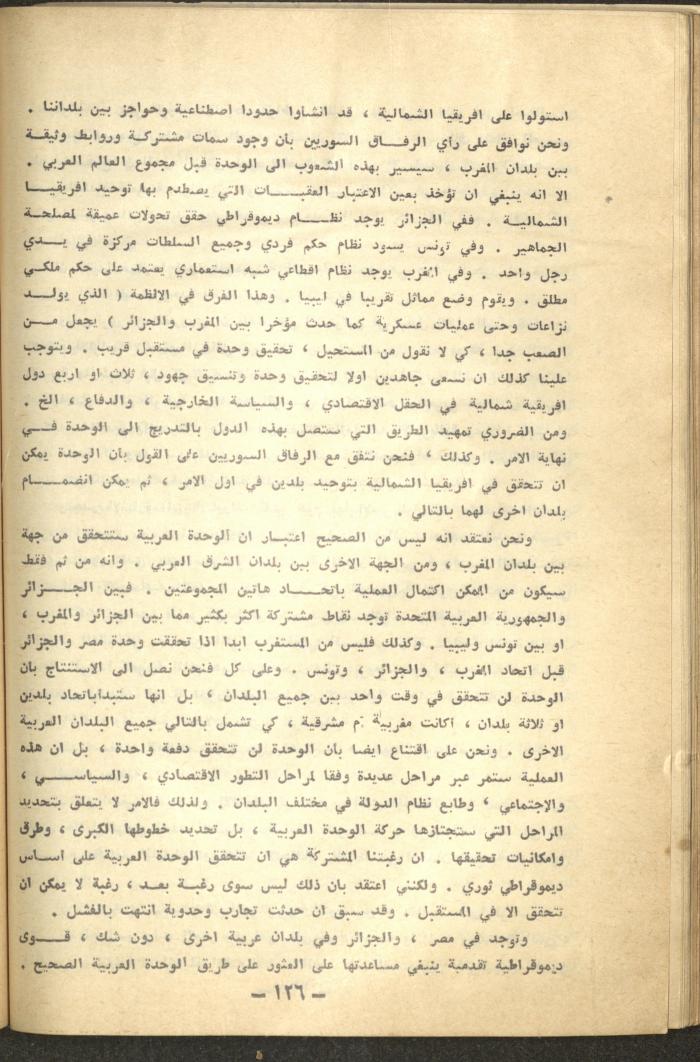 استولوا على افريقيا الشمالية ، قد انشأوا حدودا اصطناعية وحواجز بين بلداننا .
ونحن نوافق على رأي الرفـــاق السوريين بأن وجود سمات مشتركـة وروابط وثيقـة
بين بلدان المغرب ، سيسير بهذه الشعوب الى الوحدة قبل مجموع العالم العربي .
الا انه ينبغي ان تؤخذ بعين الاعتبار العقبـــات التي يصطدم بها توحيد افريقيـا
الشماليـة . ففي الجزائر يوجد نظـــام ديموقراطي حقق تحولات عميقة لمصلحة
الجماهير . وفي تونس يسود نظام حكم فردي وجميع السلطات مركزة في يـدي
رجل واحد . وفي المغرب يوجد نظام اقطاعي شبه استعماري يعتمد على حكم ملكـي
مطلق . ويقوم وضع مماثل تقريبا في ليبيا . وهذا الفرق في الانظمة ( الذي يولـد
نزاعات وحتى عمليات عسكرية كما حدث مؤخرا بين المغرب والجزائر ) يجعل مـن
الصعب جدا ، كي لا نقول من المستحيل ، تحقيق وحدة في مستقبل قريب . ويتوجب
علينا كذلك ان نسعى جاهدين اولا لتحقيق وحدة وتنسيق جهود ، ثلاث او اربع دول
افريقية شمالية في الحقل الاقتصادي ، والسياسة الخارجية ، والدفاع ، الخ .
ومن الضروري تمهيد الطريق التي ستصل بهذه الدول بالتدريج الى الوحدة فـي
نهاية الامر . وكذلك ، فنحن نتفق مع الرفاق السوريين على القول بأن الوحدة يمكن
ان تتحقق في افريقيا الشمالية بتوحيد بلدين في اول الامر ، ثم يمكن انضمـــام
بلدان اخرى لهما بالتالي .
ونحن نعتقد انه ليس من الصحيح اعتبـار ان الوحدة العربية ستتحقق من جهة
بين بلدان المغرب ، ومن الجهة الاخرى بين بلدان الشرق العربي . وانه من ثم فقط
سيكون من الممكن اكتمال العملية باتحـــاد هاتين المجموعتين . فبين الجـــزائر
والجمهورية العربية المتحدة توجد نقاط مشتركة اكثر بكثير مما بين الجزائر والمغرب ،
او بين تونس وليبيا . وكذلك فليس من المستغرب ابدا اذا تحققت وحدة مصر والجزائر
قبل اتحاد المغرب ، والجزائر ، وتونس . وعلى كل فنحن نصل الى الاستنتاج بأن
الوحدة لن تتحقق في وقت واحد بين جميع البلدان ، بل انها ستبدأباتحاد بلدين
او ثلاثة بلدان ، أكانت مغربية أم مشرقية ، كي تشمل بالتالي جميع البلدان العربية
الاخرى . ونحن على اقتناع ايضا بأن الوحدة لن تتحقق دفعة واحدة ، بل ان هذه
العملية ستمر عبر مراحل عديدة وفقا لمراحل التطور الاقتصادي ، والسياســـي ،
والإجتماعي ، وطابع نظام الدولة في مختلف البلدان . ولذلك فالامر لا يتعلق بتحديد
المراحل التي ستجتازها حركة الوحدة العربية ، بل تحديد خطوطها الكبرى ، وطرق
وامكانيات تحقيقها . ان رغبتنا المشتركة هي ان تتحقق الوحدة العربية على اسـاس
ديموقراطي ثوري . ولكنني اعتقد بأن ذلك ليس سوى رغبـة بعـد ، رغبة لا يمكن ان
تتحقق الا في المستقبل . وقد سبق ان حدثت تجارب وحدوية انتهت بالفشل .
وتوجد في مصر ، والجزائر وفي بلدان عربية اخرى ، دون شك ، قـــوى
ديموقراطية تقدمية ينبغي مساعدتها على العثور على طريق الوحدة العربية الصحيح .
— ١٢٦ —